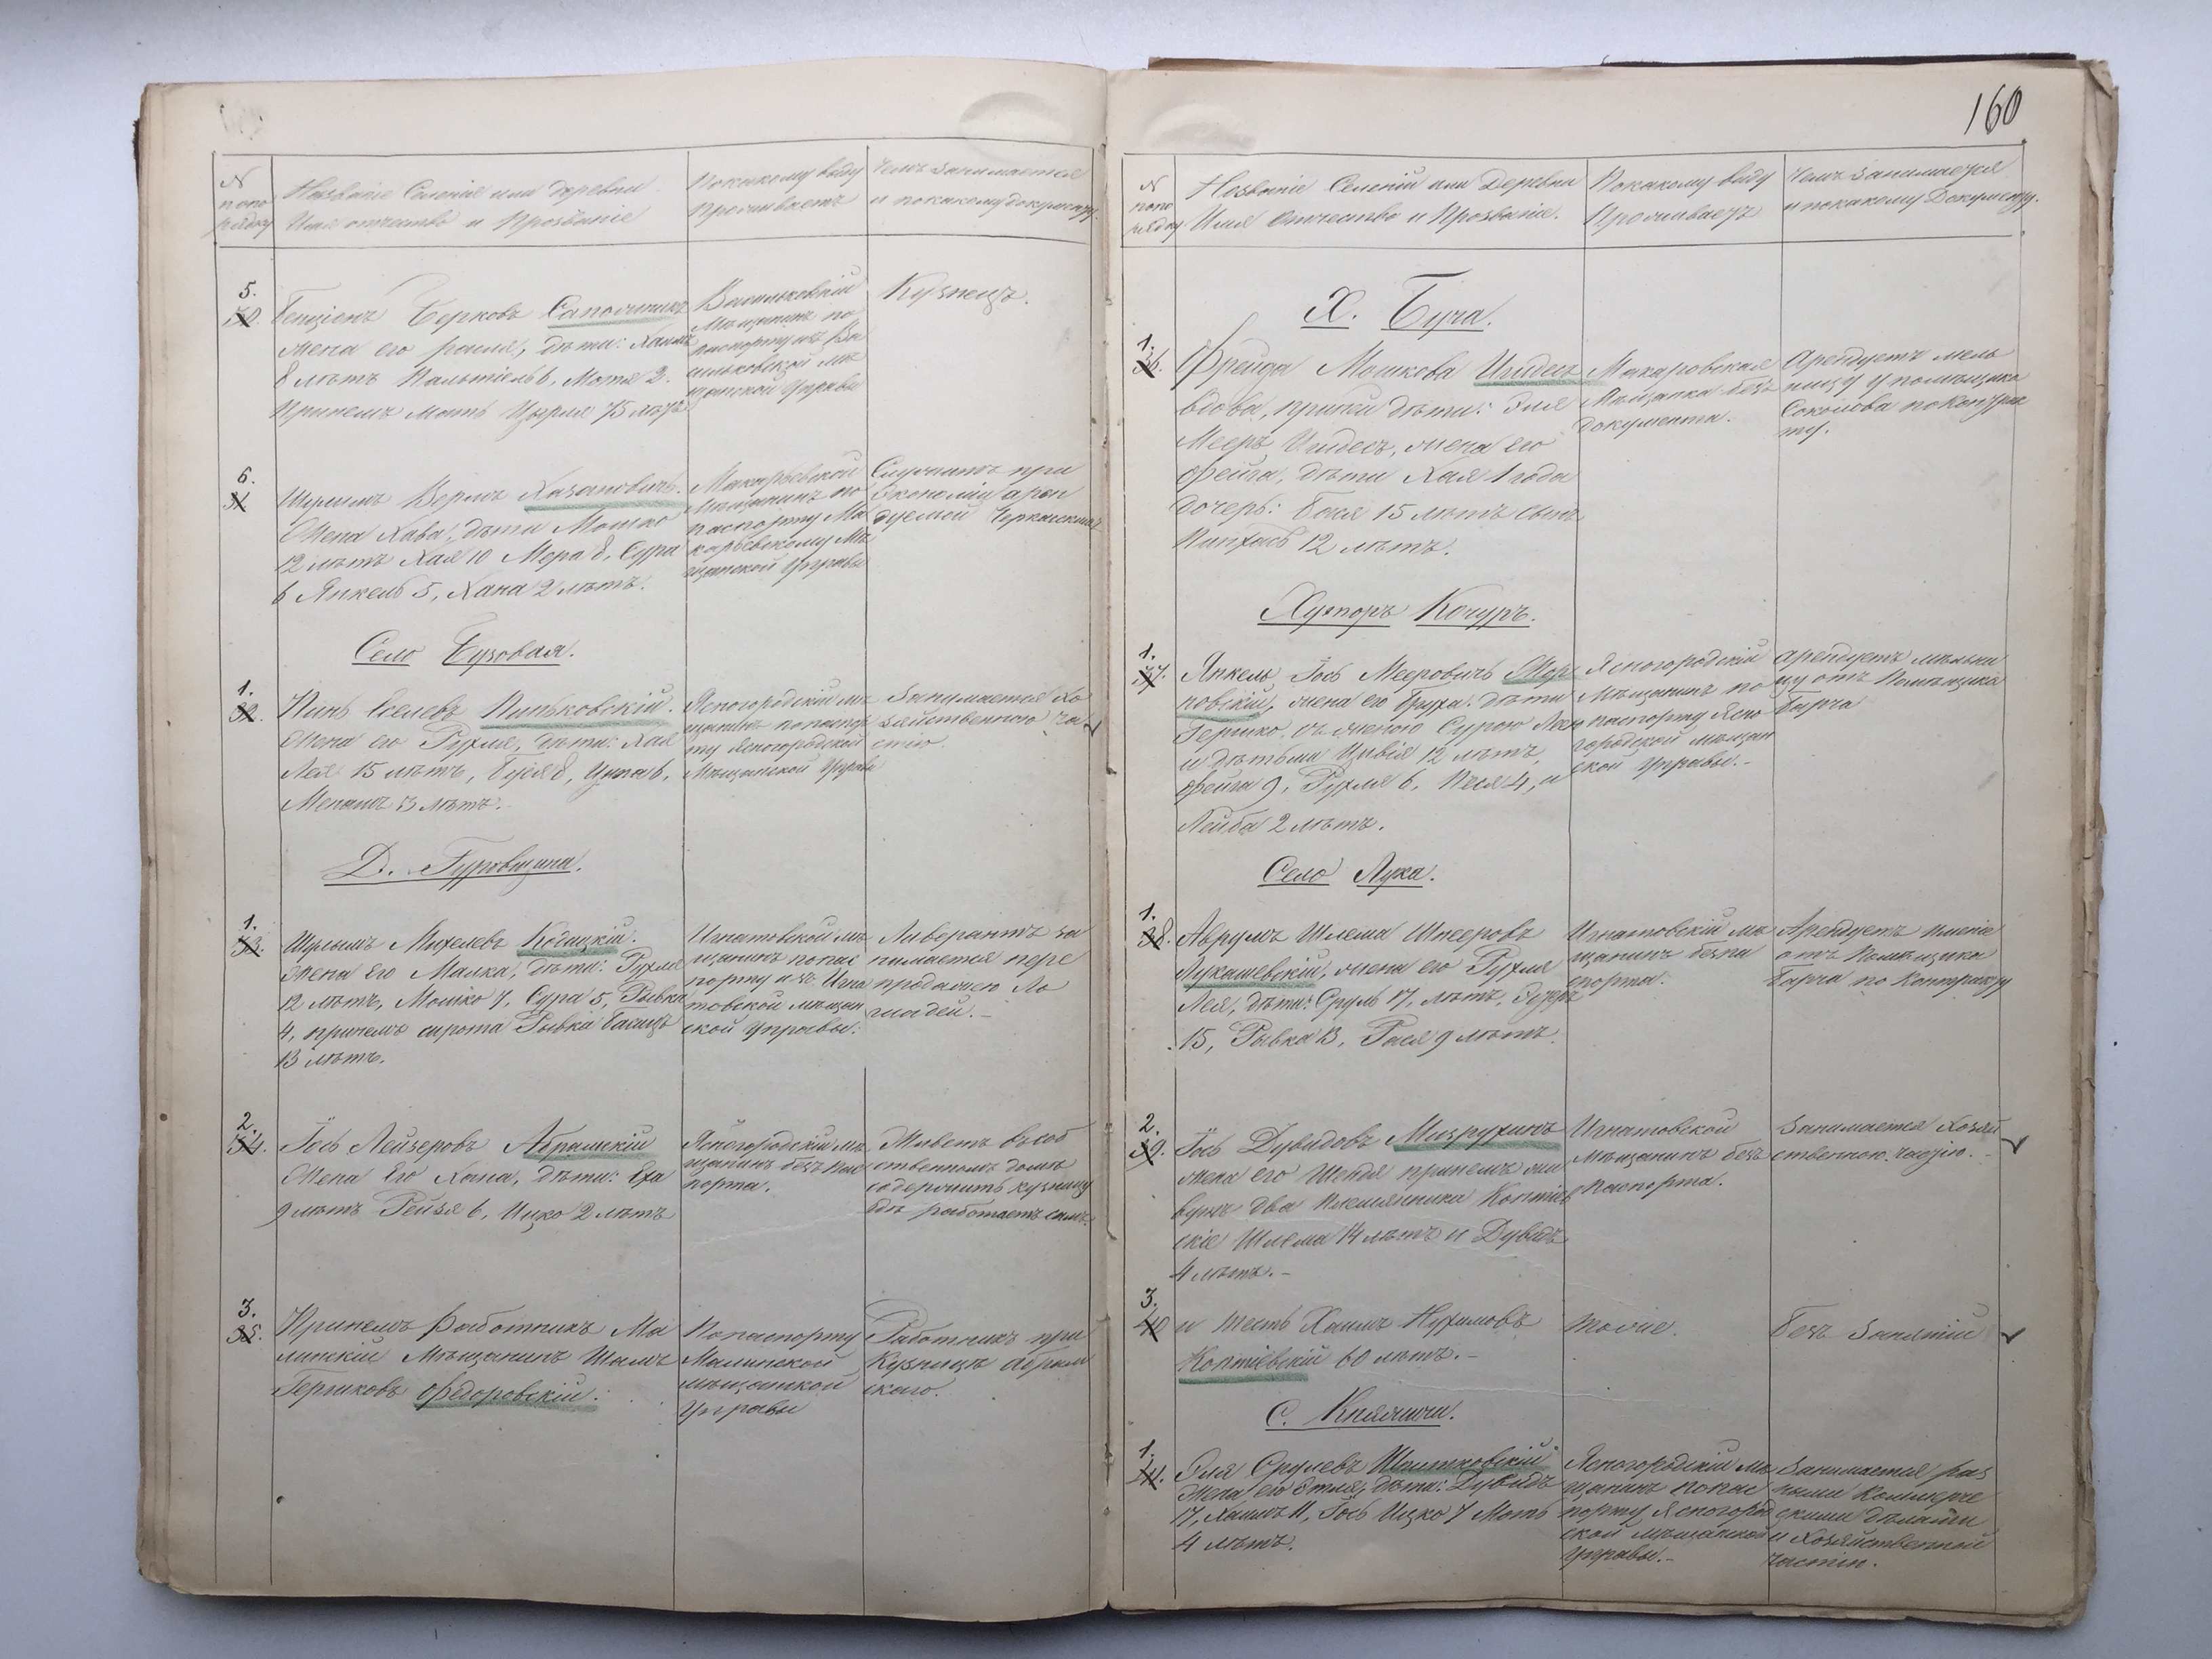 N
попо
рядку
Названіе Селенія или деревни
Имя отчество и Прозваніе
Покакому виду
Проживаетъ
Чемъ занимается
и покакому документу.
5.
30.
Бенціонъ Берковъ Сапожникъ
жена его Рахля, дѣти: Хаимъ
8 лѣтъ Пальтіель 6, Мотя 2.
Принемъ Мать Цырля 75 лѣтъ
Васильковскій
Мѣщанинъ по
паспорту изъ Ва
сильковской мѣ
щанской Управы
Кузнецъ.
6.
31
Шулимъ Берлъ Хазановичъ.
Жена Хава, дѣти Мошко
12 лѣтъ Хая 10 Мера 8, Сура
6 Янкель 5, Хана 2 лѣтъ.
Макарьевской
Мѣщанинъ по
паспорту Ма
карьевскому Мѣ
щанской Управы
Служитъ при
Экономіи арен
дуемой Черкаскимъ
Село Бузовая.
1.
32.
Пинь Іселевъ Пиньковскій.
Жена его Рухля, дѣти: Хая
Лея 15 лѣтъ, Буся 8, Ципа 6,
3 лѣтъ.
Ясногородскій мѣ
щанинъ попаспор
ту Ясногородской
Мѣщанской Управы
Занимается хо
зяйственною ча
стію.
Д. Гуровщина.
1.
33.
Шулимъ Михелевъ Кодацкій.
Жена его Малка, дѣти: Рухля
12 лѣтъ, Мошко 7, Сура 5, Рывка
4, принемъ сирота Рывка
13 лѣтъ.
Игнатовской мѣ
щанинъ попас
порту изъ Игна
товской мѣщан
ской Управы.
Ливерантъ за
нимается пере
продажею Ло
шадей.
2.
34.
Іось Лейзеровъ Абрамскій
Жена Его Хана, дѣти:
9 лѣтъ Рейзя 6, Ицко 2 лѣтъ
Ясногородскій мѣ
щанинъ безъ пас
порта.
Живетъ въ соб
ственномъ домѣ
содержитъ кузницу
гдѣ работаетъ самъ.
3.
35.
Принемъ работникъ Ма
линскій Мѣщанинъ
Гершковъ Федоровскій.
Попаспорту
Малинской
мѣщанской
Управы
Работникъ при
Кузницѣ Абрам
скаго.
160
N
попо
рядку
Названіе Селеній или Деревни
Имя Отчество и Прозваніе.
Покакому виду
Проживаетъ
Чемъ занимается
и покакому Документу.
Х. Буча.
1.
36.
Фрейда Мошкова Игидесъ
вдова, при ней дѣти: Эля
Мееръ Игидесъ, жена его
Фейга, дѣти Хая 1 года
дочерь: Бася 15 лѣтъ сынъ
Пинхасъ 12 лѣтъ.
Макаровская
Мѣщанка безъ
документа.
Арендуетъ мель
ницу у помѣщика
Соколова по контрак
ту.
Хуторъ Кочуръ.
1.
37.
Янкель Іось Мееровичъ
новскій, жена его Бруха. дѣти
Гершко съ женою Сурою Леею
и дѣтьми Цивія 12 лѣтъ,
Фейга 9, Рухля 6, Песя 4, и
Лейба 2 лѣтъ.
Ясногородскій
Мѣщанинъ по
паспорту Ясно
городской мѣщан
ской управы.
Арендуетъ мельни
цу отъ Помѣщика
Барча
Село Лука.
1.
38.
Аврумъ Шлема Шнееровъ
Лукашевскій, жена его Рухля
Лея, дѣти: Сруль 17 лѣтъ,
15, Рывка 13, Рася 9 лѣтъ.
Игнатовскій мѣ
щанинъ безпа
спорта.
Арендуетъ имѣніе
отъ Помѣщика
Барча по Контракту
2.
39.
Іось Дувидовъ Мизрухинъ
жена его Шейдля принемъ жи
вутъ два племянника Коптіев
скіе Шлема 14 лѣтъ и Дувидъ
4 лѣтъ.
Игнатовской
Мѣщанинъ безъ
паспорта.
Занимается Хозяй
ственною частію.
3.
40
и тесть Хаимъ Нухимовъ
Коптіевскій 60 лѣтъ.
тоже.
безъ Занятій
С. Княжичи.
1.
41.
Эля Срулевъ Шамковскій
Жена его Этля, дѣти: Дувидъ
17, Хаимъ 11, Іось Ицко 7 Моть
4 лѣтъ.
Ясногородскій мѣ
щанинъ попас
порту Ясногород
ской мѣщанской
управы.
Занимается раз
ными Коммерче
скими дѣлами
и Хозяйственной
частію.